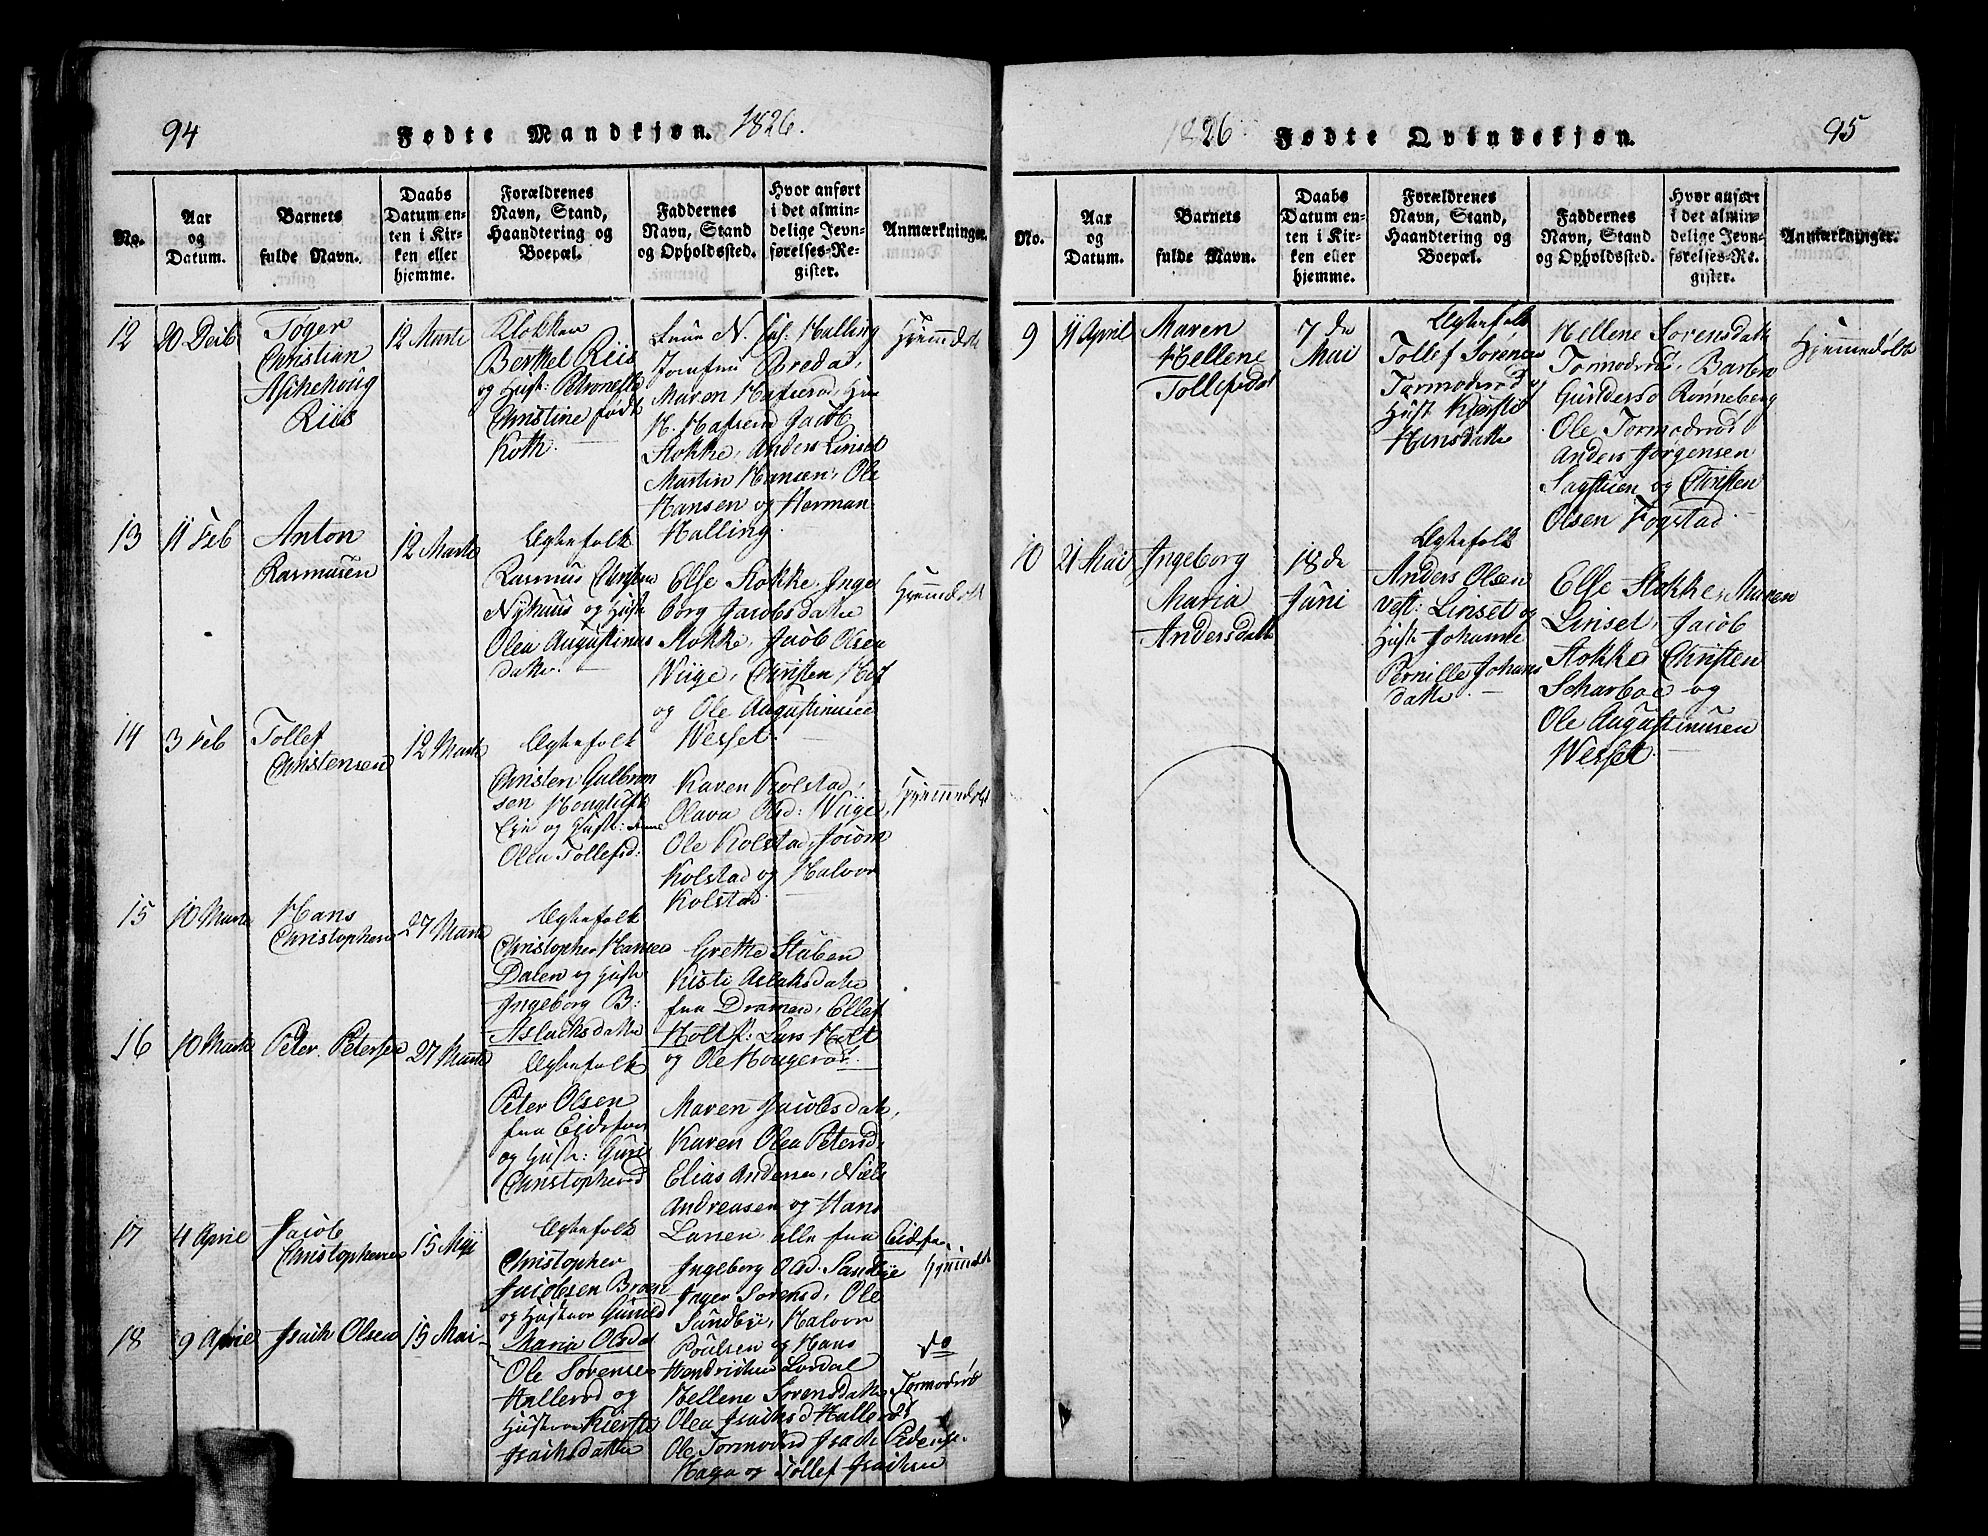 94
Fødte Mandkjøn. 1826.
No.
Aar
og
Datum.
Barnets
fulde Navn.
Daabs
Datum en-
ten i Kir-
ken eller
hjemme.
Forældrenes
Navn, Stand,
Haandtering og
Boepæl.
Faddernes
Navn, Stand
og Opholdssted.
Hvor anført
i det almin-
delige Jevn-
førelses-Re-
gister.
Anmærkninger.
12
20 Decb
Tøger
Christian
Aschehoug
Riis
12 Marts
Klokker
Berthel Riis
og Hust: Petronella
Christine født
Koth.
Halling
Jomfru Breda,
Maren Hafsrød,
H. Hafsrød Jacob
Stokke, Anders Linset
Martin Hansen, Ole
Hansen og Herman
Halling.
Hjemmedøbt
13
11 Feb
Anton
Rasmusen
12 Marts
Ægtefolk
Rasmus Christens
Nyhuus og Hust
Olea Augustinus
datter.
Else Stokke, Inge
borg Jacobsdatter
Stokke, Jacob Olsen
Wiige, Christen
og Ole Augustinusen
Wesset.
Hjemmedøbt
14
3 Feb
Tollef
Christensen
12 Marts
Ægtefolk
Christen Gulbran
sen
Eje og Hust: Anne
Olea Tollefsd:
Karen Kolstad,
Olava Olsd: Wiige,
Ole Kolstad,
Kolstad og Halvor
Kolstad.
Hjemmedøbt
15
10 Marts
Hans
Christophersen
27 Marts
Ægtefolk
Christopher Hansen
Dalen og Hust
Ingeborg B:
Aslachsdatter
Grethe Stuben
Kisti Aslaksdatter
fra Dramen, Ellef
Holt f: Lars Holt
og Ole Hougerød.
16
10 Marts
Peter Petersen
27 Marts
Ægtefolk
Peter Olsen
fra Eidsfos
og Hust: Guri
Christophersd
Maren Jacobsdatter,
Karen Olea Petersd,
Elias Andersen, Niels
Andreasen og Hans
Larsen, alle fra Eidsfos
17
4 April
Jacob
Christophersen
15 Maji
Ægtefolk
Christopher
Jacobsen Braen
og Hustrue Gunild
Maria Olsdat
Ingeborg Olsd: Sandbye
Inger Sorensd, Ole
Sundbye, Halvor
Poulsen og Hans
Hendrichsen Lordal
Hjemmedøbt
18
9 April
Isach Olsen
15 Mai
Ole Sørensen
Hallerød og
Hustrue Kiersti
Isachsdatter
Hellene Sorensdatter Tormodrød
Olea Isachsd Hallerød
Ole Tormodrød Isach Pederse
Haga og Tollef Isachsen
do
1826
Fødte Qvindekjøn.
95
No.
Aar
og
Datum.
Barnets
fulde Navn.
Daabs
Datum en-
ten i Kir-
ken eller
hjemme.
Forældrenes
Navn, Stand,
Haandtering og
Boepæl.
Faddernes
Navn, Stand
og Opholdssted.
Hvor anført
i det almin-
delige Jevn-
førelses-Re-
gister.
Anmærkninger.
9
11 April
Maren
Hellene
Tollefsdat
7 de
Mai
Ægtefolk
Tollef Sorensen
Tormodsrød og
Hust Kjersti
Hansdatter
Hellene Sorensdatter
Tormodsrød, Barbro
Gundersd Rønneberg
Ole Tormodrød
Anders Jørgensen
Sagstuen og Christen
Olsen Fogstad.
Hjemmedøbte
10
21 Mai
Ingeborg
Maria
Andersdatt
18 de
Juni
Ægtefolk
Anders Olsen
vest: Linset og
Hust Johanne
Pernille Johans
datter.
Else Stokke, Maren
Linset, Jacob
Stokke, Christen
Scharboe og
Ole Augustinusen
Wesset.